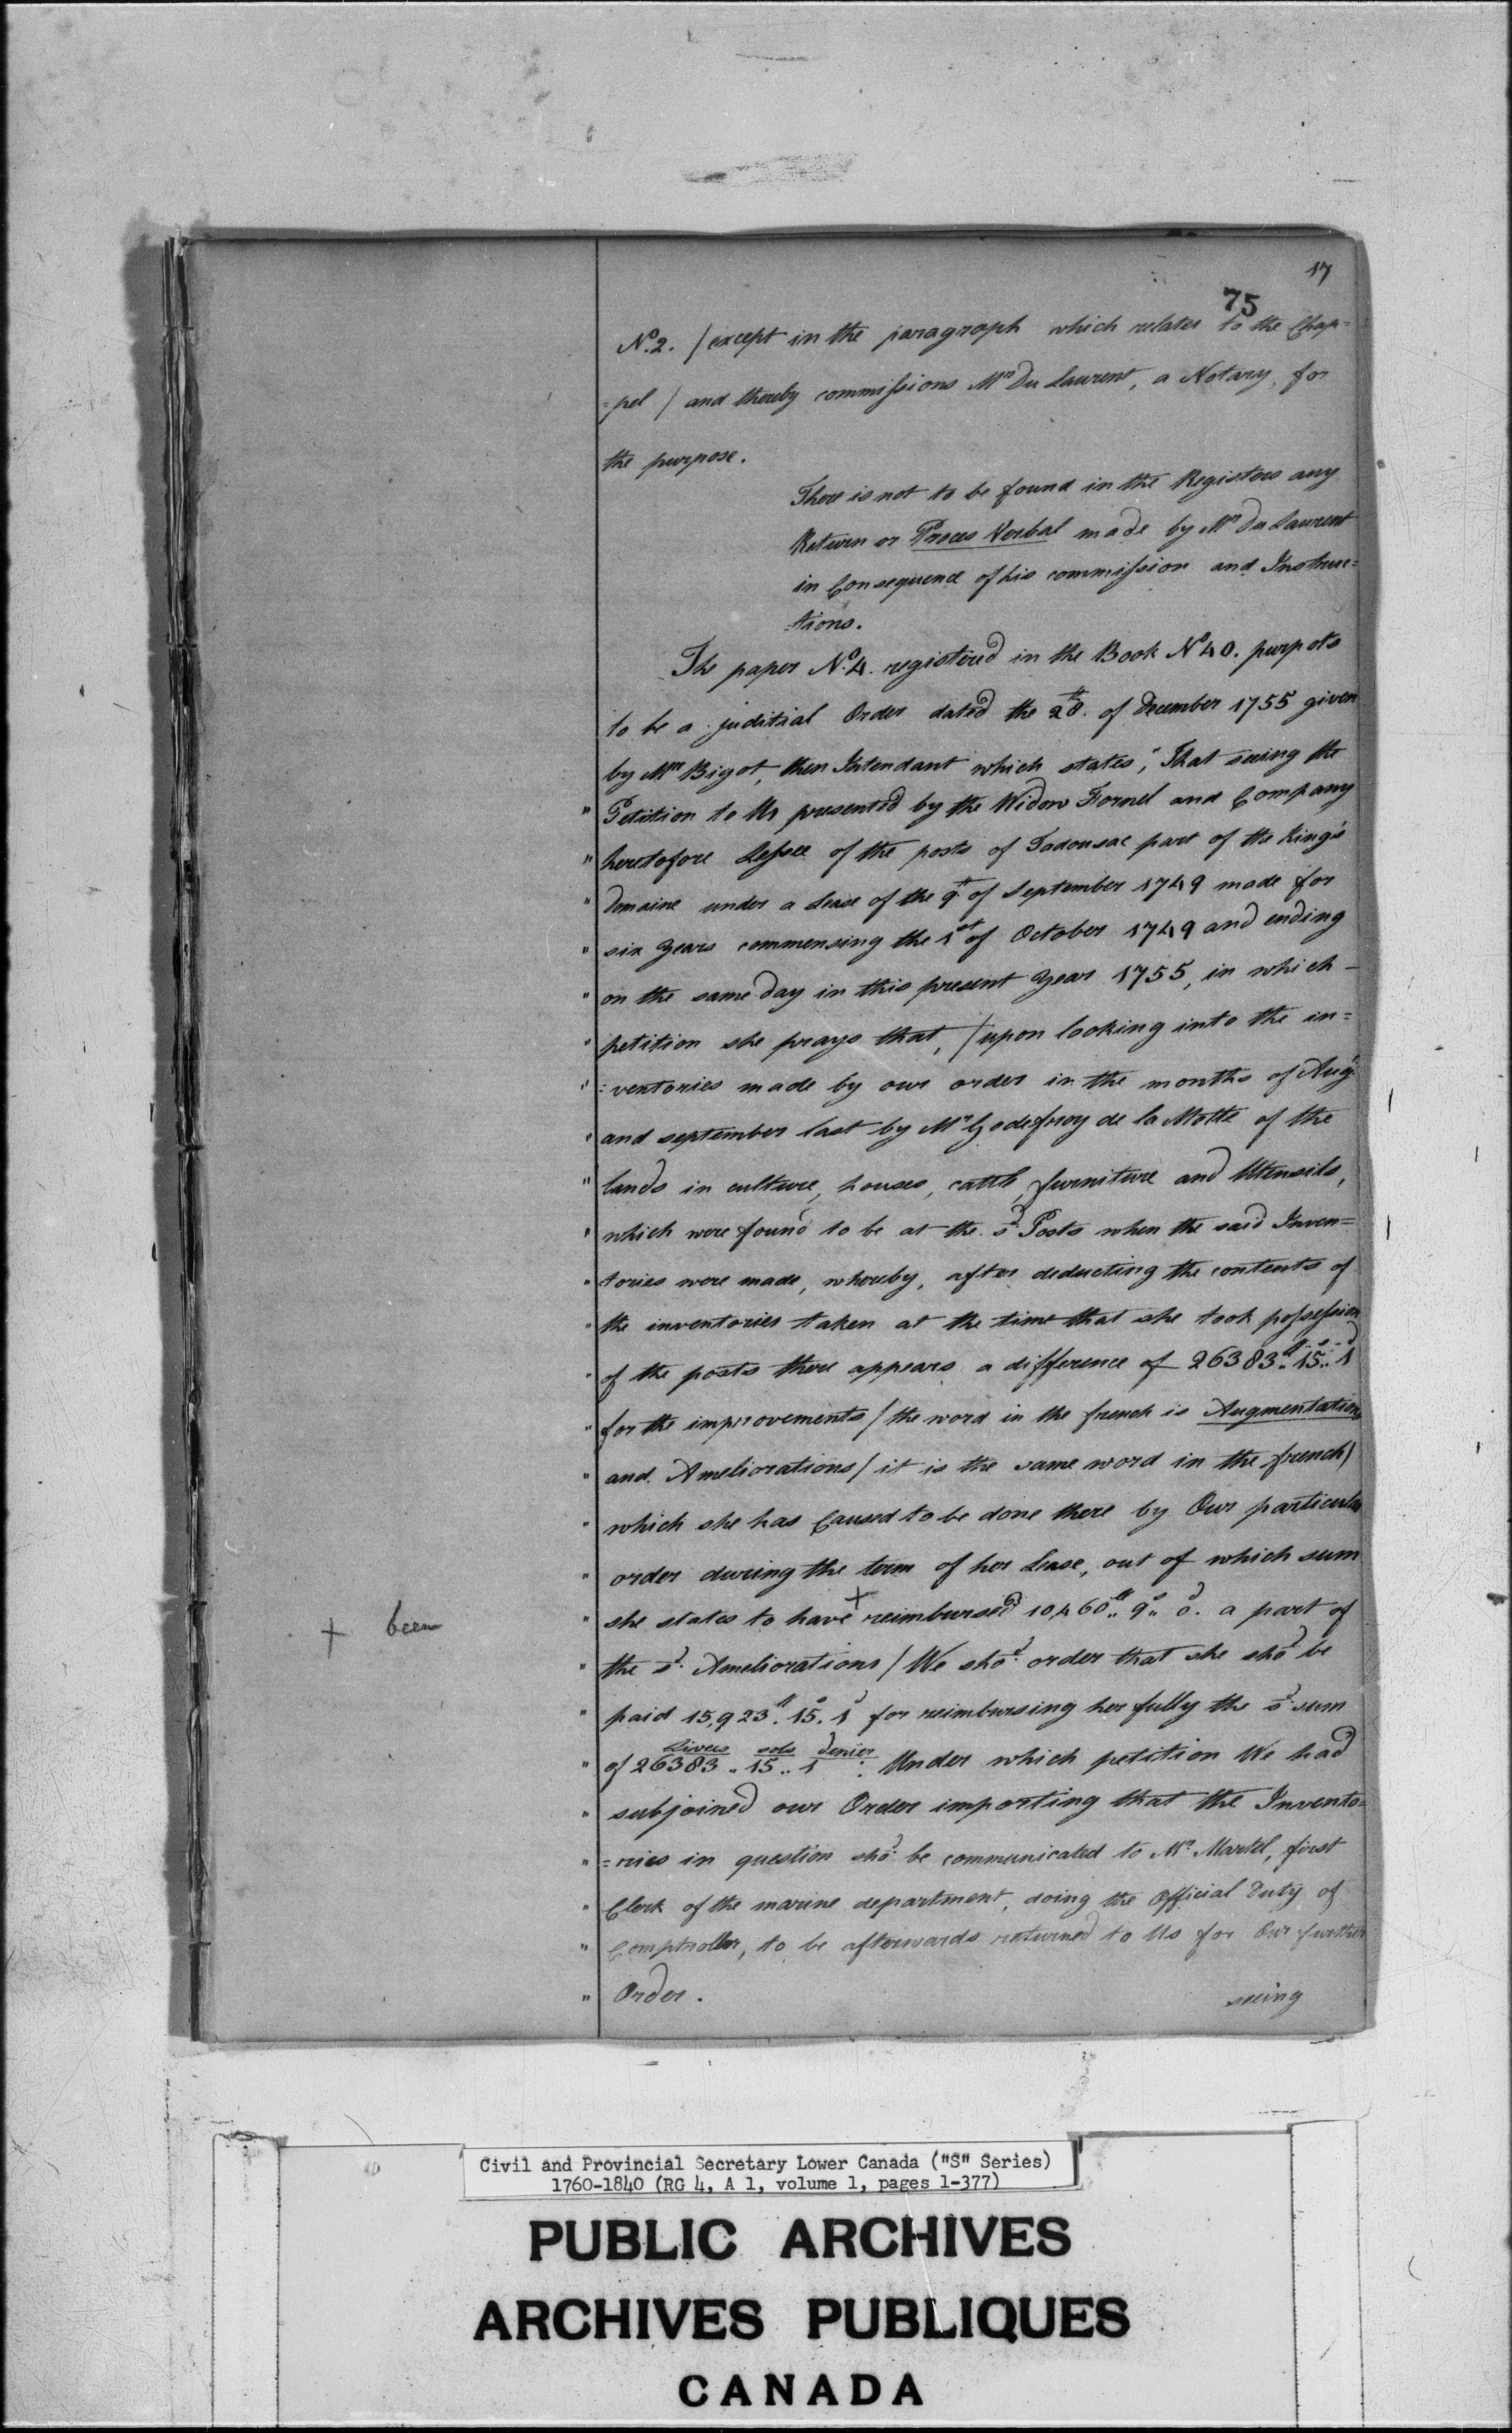 17
75
No. 2. / except in the paragraph which relates to the Chap=
=pel / and thereby commissions Mr Du Laurent, a Notary, for
the purpose.
There is not to be found in the Registers any
Return or Proces Verbal made by Mr Du Laurent
in Consequence of his commission and Instruc=
=tions.
The paper No. 4. registered in the Book No 40. purpots
to be a juditial Order dated the 28th. of December 1755 given
by Mr Bigot, then Intendant which states, "That seeing the
" Petition to Us presented by the Widow Fornel and Company
" heretofore Lessee of the posts of Tadousac part of the King's
" Domaine under a Lease of the 9th of September 1749 made for
" six years commensing the 1st of October 1749 and ending
" on the same day in this present year 1755, in which -
" petition she prays that, / upon looking into the in=
" =ventories made by our order in the months of Augt
" and september last by Mr Godefroy de la Motte of the
" lands in culture, houses, cattle, furniture and Utensils,
" which were found to be at the sd Posts when the said Inven=
" tories were made, whereby, after deducting the contents of
" the inventories taken at the time that she took possession
" of the posts there appears a difference of 26383tt.. 15s.. 1d
" for the improvements / the word in the french is Augmentations
" and Ameliorations / it is the same word in the french /
" which she has Caused to be done there by Our particular
" order during the term of her Lease, out of which sum
" she states to have + reimbursed 10,460tt.. 9s.. 0d. a part of
+ been
" the sd. Ameliorations / We shod. order that she shod be
" paid 15,923tt. 15s. 1d for reimbursing her fully the sd sum
" of 26383 Livres .. 15 sols .. 1 denier. Under which petition We had
" subjoined our Order importing that the Invento=
" =ries in question shod. be communicated to Mr. Martel, first
" Clerk of the marine department, doing the Official Duty of
" Comptroller, to be afterwards returned to Us for Our further
" Order.
seeing
Civil and Provincial Secretary Lower Canada ("S" Series)
1760-1840 (RG 4, A 1, volume 1, pages 1-377)
PUBLIC ARCHIVES
ARCHIVES PUBLIQUES
CANADA